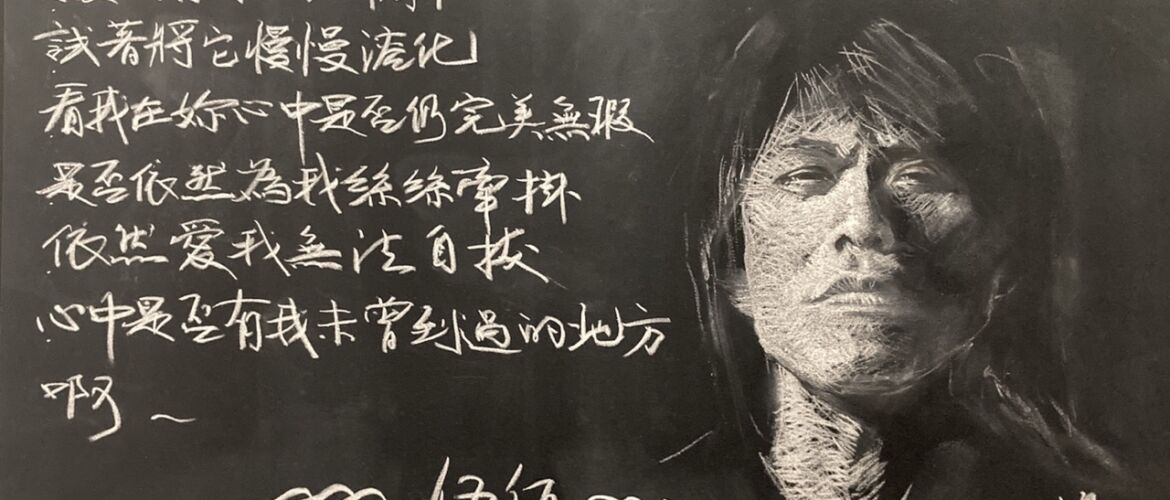 試著將它慢慢溶化
看我在妳心中是否仍完美無瑕
是否依然為我絲絲牽掛
依然愛我無法自拔
心中是否有我未曾到過的地方
啊~